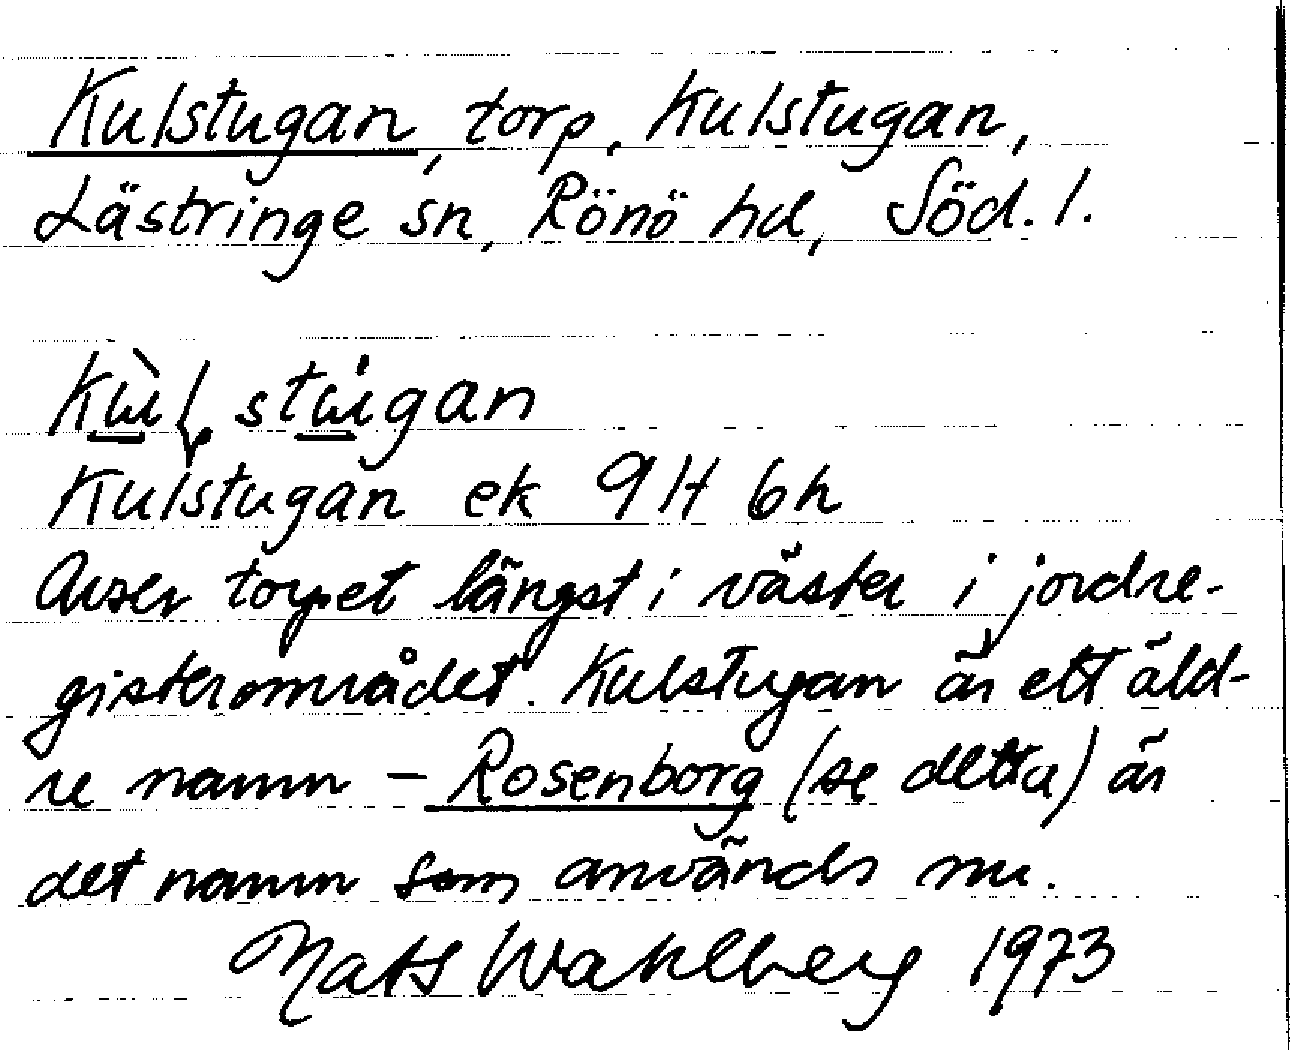 Kulstugan, torp, Kulstugan,
Lästringe sn, Rönö hd, Söd. l.
Kulstugan ek 9H 6h
Avser torpet längst i väster i jordre-
gisterområdet. Kulstugan är ett äld-
re namn – Rosenborg (se detta) är
det namn som används nu.
Mats Wahlberg 1973